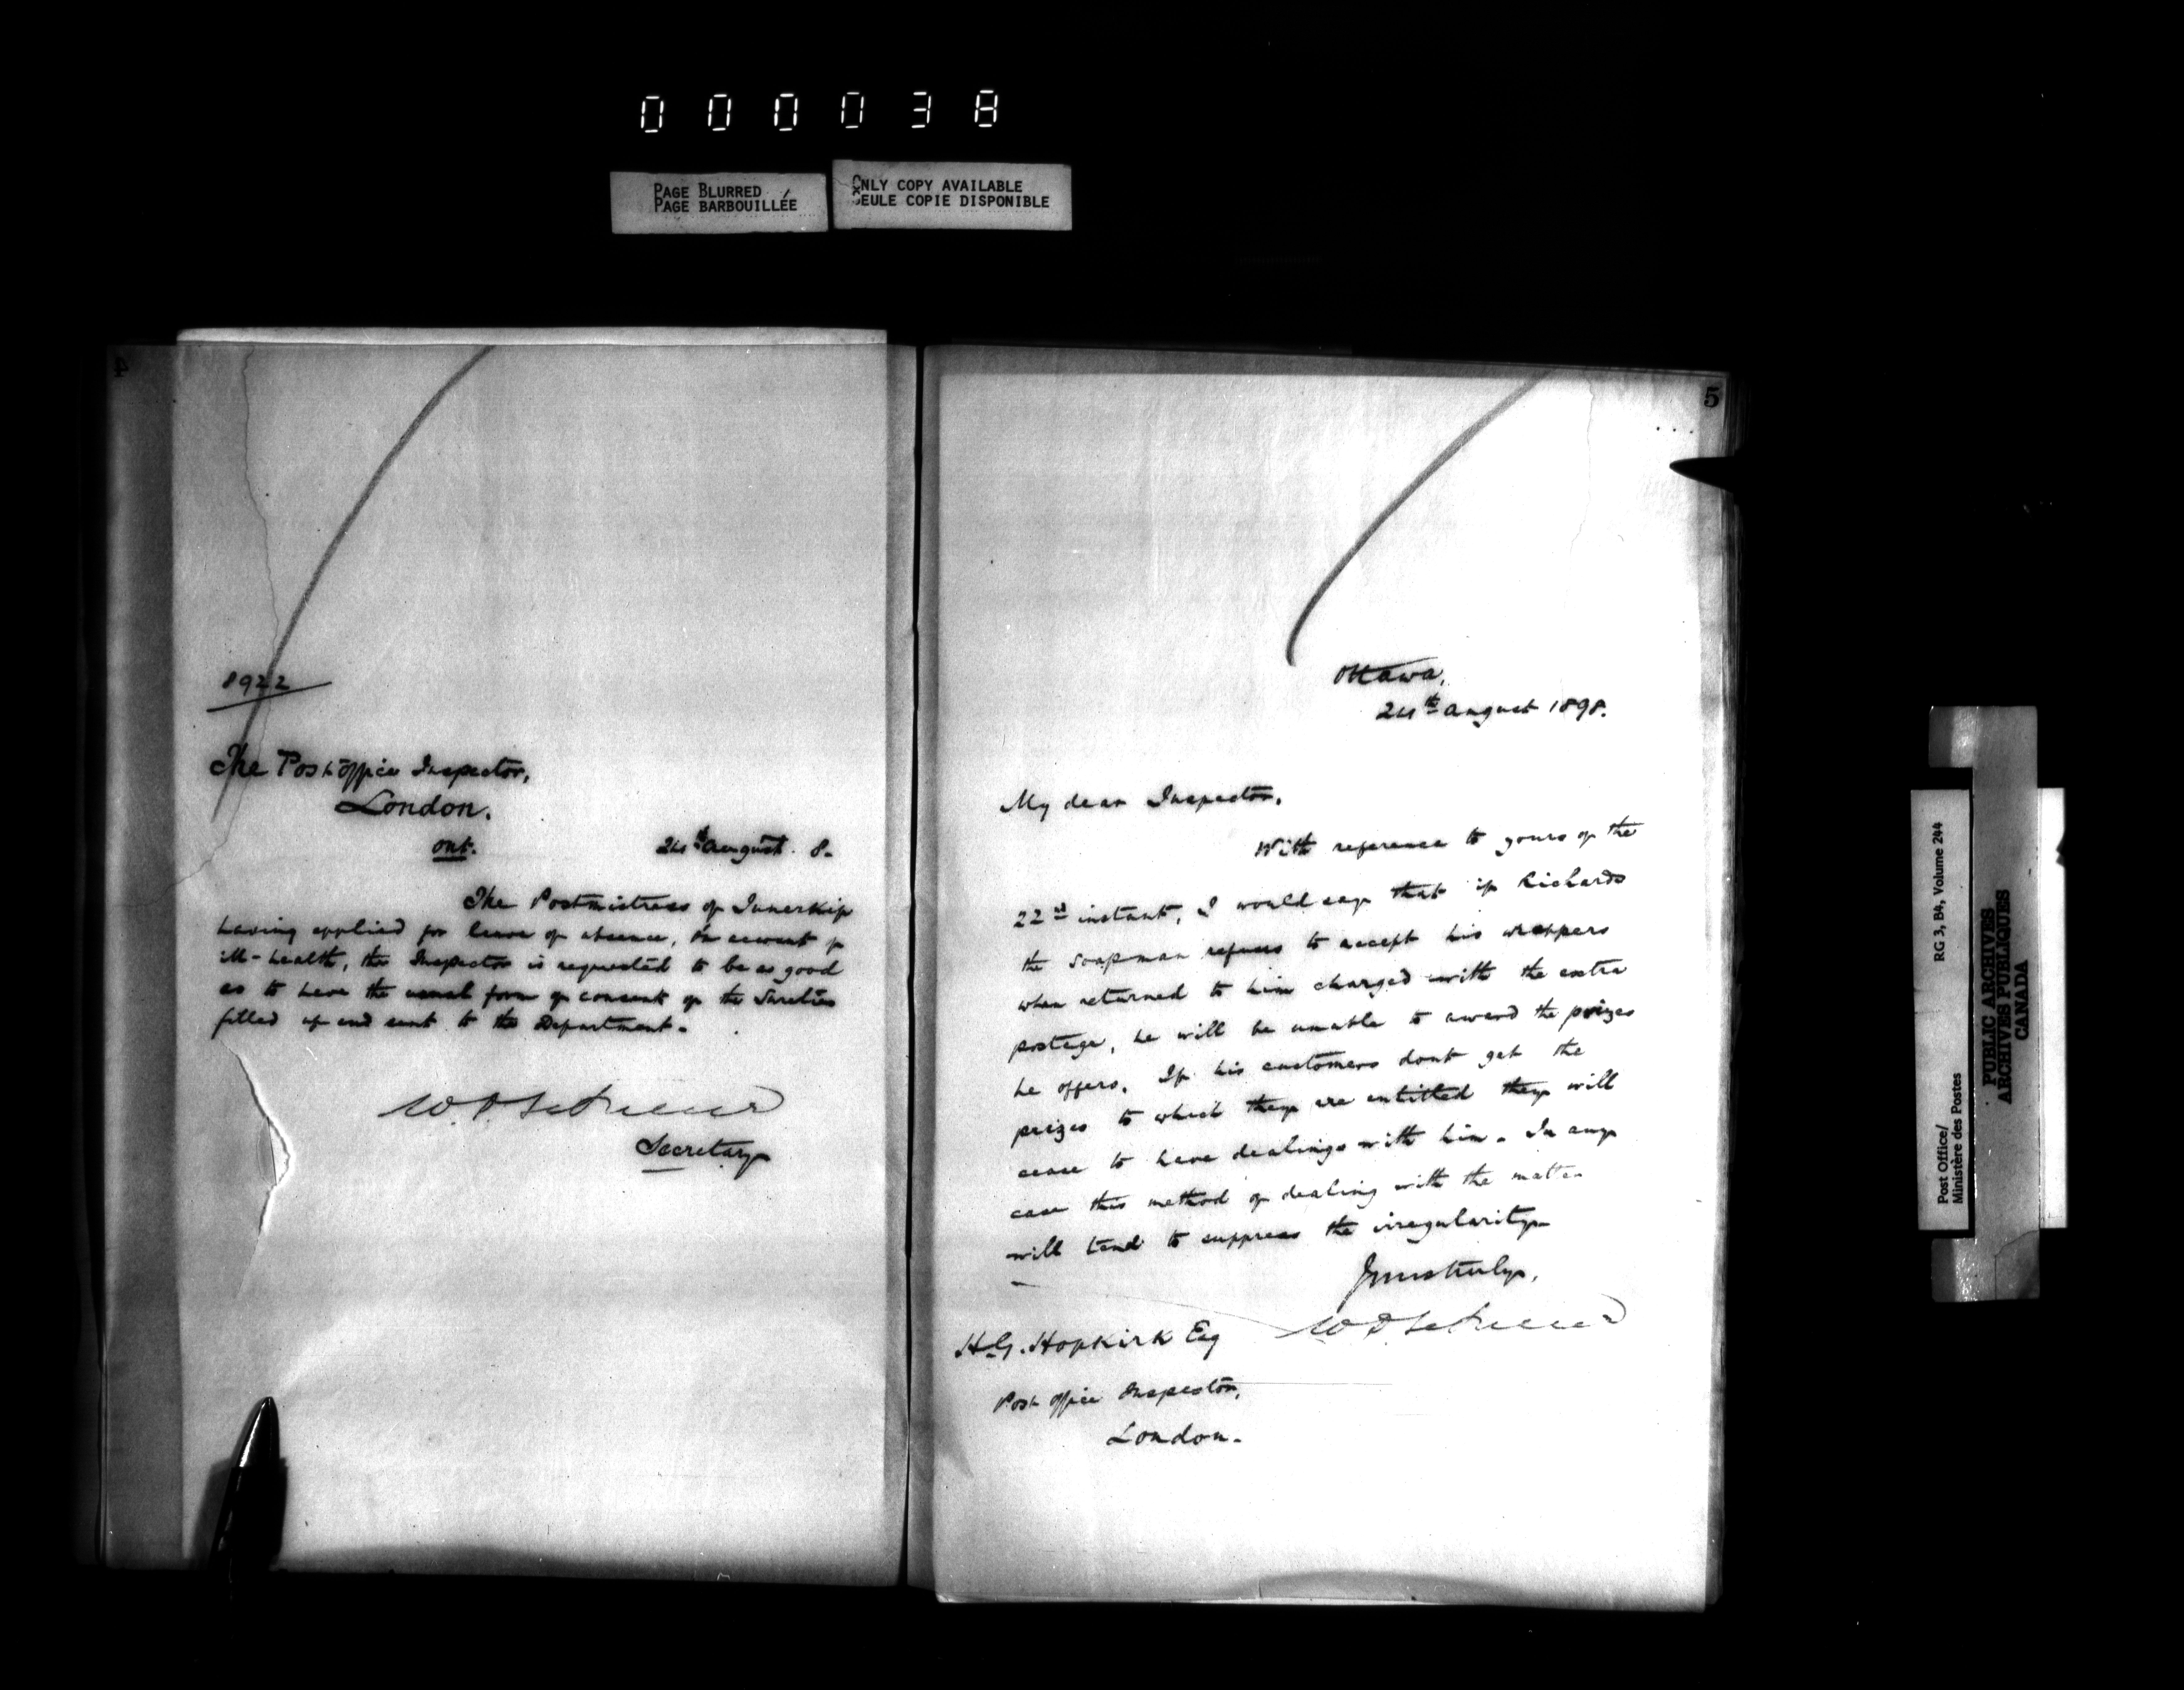 000038
PAGE BLURRED
PAGE BARBOUILLÉE
ONLY COPY AVAILABLE
SEULE COPIE DISPONIBLE
4
8922
The Post office Inspector,
London.
Ont.
24th August. 8.
The Postmistress of Innerkip
having applied for leave of absence, on account of
ill-health, the Inspector is requested to be as good
as to have the usual form of consent of the Sureties
filled up and sent to the Department.
Secretary
5
Ottawa,
24th August 1898.
My dear Inspector,
With reference to yours of the
22nd instant, I would say that if Richards
the soapman refuses to accept his wrappers
when returned to him charged with the extra
postage, he will be unable to award the prizes
he offers. If his customers dont get the
prizes to which they are entitled they will
cease to have dealings with him. In any
case this method of dealing with the matter
will tend to suppress the irregularity
Yours truly,
H.G. Hopkirk Esq
Post office Inspector,
London.
Post Office/
Ministère des Postes
RG 3, B4, Volume 244
PUBLIC ARCHIVES
ARCHIVES PUBLIQUES
CANADA